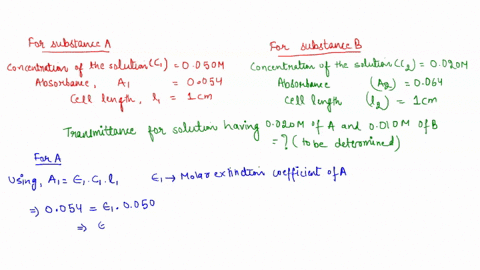 For substance A
Concentration of the solution (C₁) = 0.050M
Absorbance, A₁ = 0.054
Cell length, l₁ = 1cm
For substance B
Concentration of the solution (C₂) = 0.020M
Absorbance (A₂) = 0.064
Cell length (l₂) = 1cm
Transmittance for solution having 0.020M of A and 0.010M of B
= ? (to be determined)
For A
Using, A₁ = ε₁.C₁.l₁ ε₁ → Molar extinction coefficient of A
⇒ 0.054 = ε₁.0.050
⇒ ε